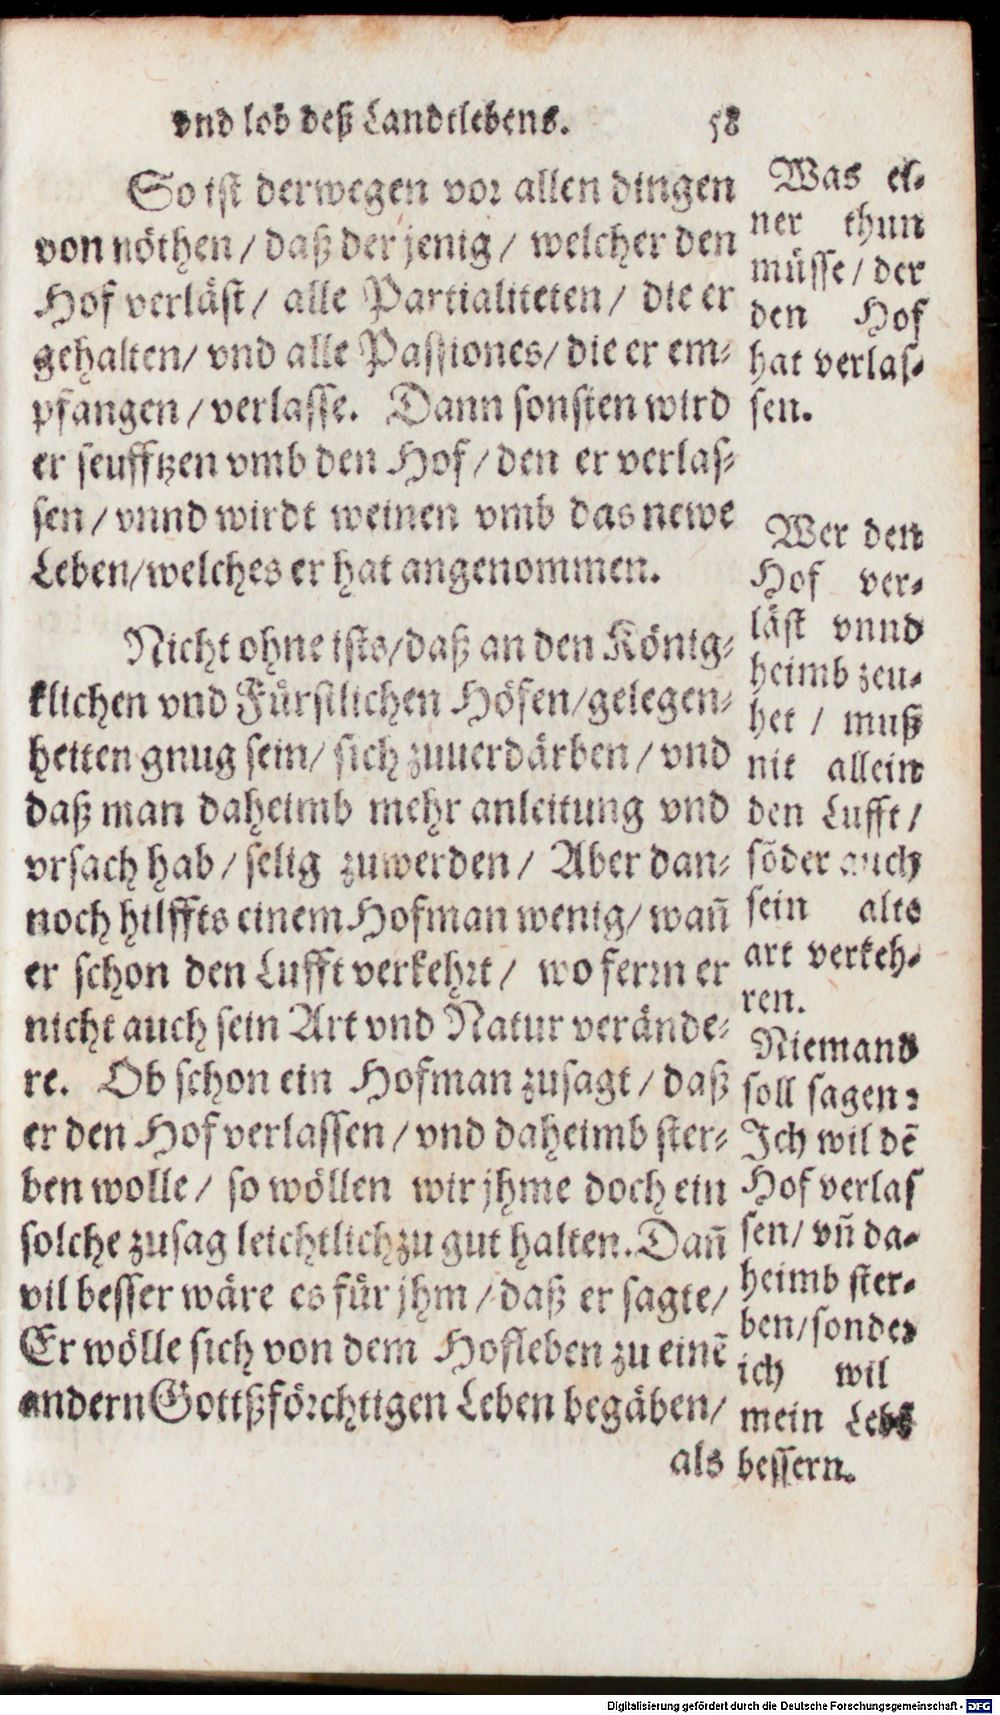 vnd lob deß Landtlebens. 58
So ist derwegen vor allen dingen
von nöthen / daß der jenig / welcher den
Hof verläst / alle Partialiteten / die er
gehalten / vnd alle Passiones / die er em-
pfangen / verlasse. Dann sonsten wird
er seufftzen vmb den Hof / den er verlas-
sen / vnnd wirdt weinen vmb das newe
Leben / welches er hat angenommen.
Nicht ohne ists / daß an den König-
klichen vnd Fürstlichen Höfen / gelegen-
heiten gnug sein / sich zuuerdärben / vnd
daß man daheimb mehr anleitung vnd
vrsach hab / selig zuwerden / Aber dan-
noch hilffts einem Hofman wenig / wañ
er schon den Lufft verkehrt / wo ferrn er
nicht auch sein Art vnd Natur verände-
re. Ob schon ein Hofman zusagt / daß
er den Hof verlassen / vnd daheimb ster-
ben wolle / so wöllen wir jhme doch ein
solche zusag leichtlich zu gut halten. Dañ
vil besser wäre es für jhm / daß er sagte /
Er wölle sich von dem Hofleben zu einẽ
andern Gottßförchtigen Leben begäben /
als
Was ei-
ner thun
müsse / der
den Hof
hat verlas-
sen.
Wer den
Hof ver-
läst vnnd
heimb zeu-
het / muß
nit allein
den Lufft /
sõder auch
sein alte
art verkeh-
ren.
Niemand
soll sagen:
Jch wil dẽ
Hof verlas
sen / vñ da-
heimb ster-
ben / sonder
ich wil
mein Lebẽ
bessern.
Digitalisierung gefördert durch die Deutsche Forschungsgemeinschaft - DFG